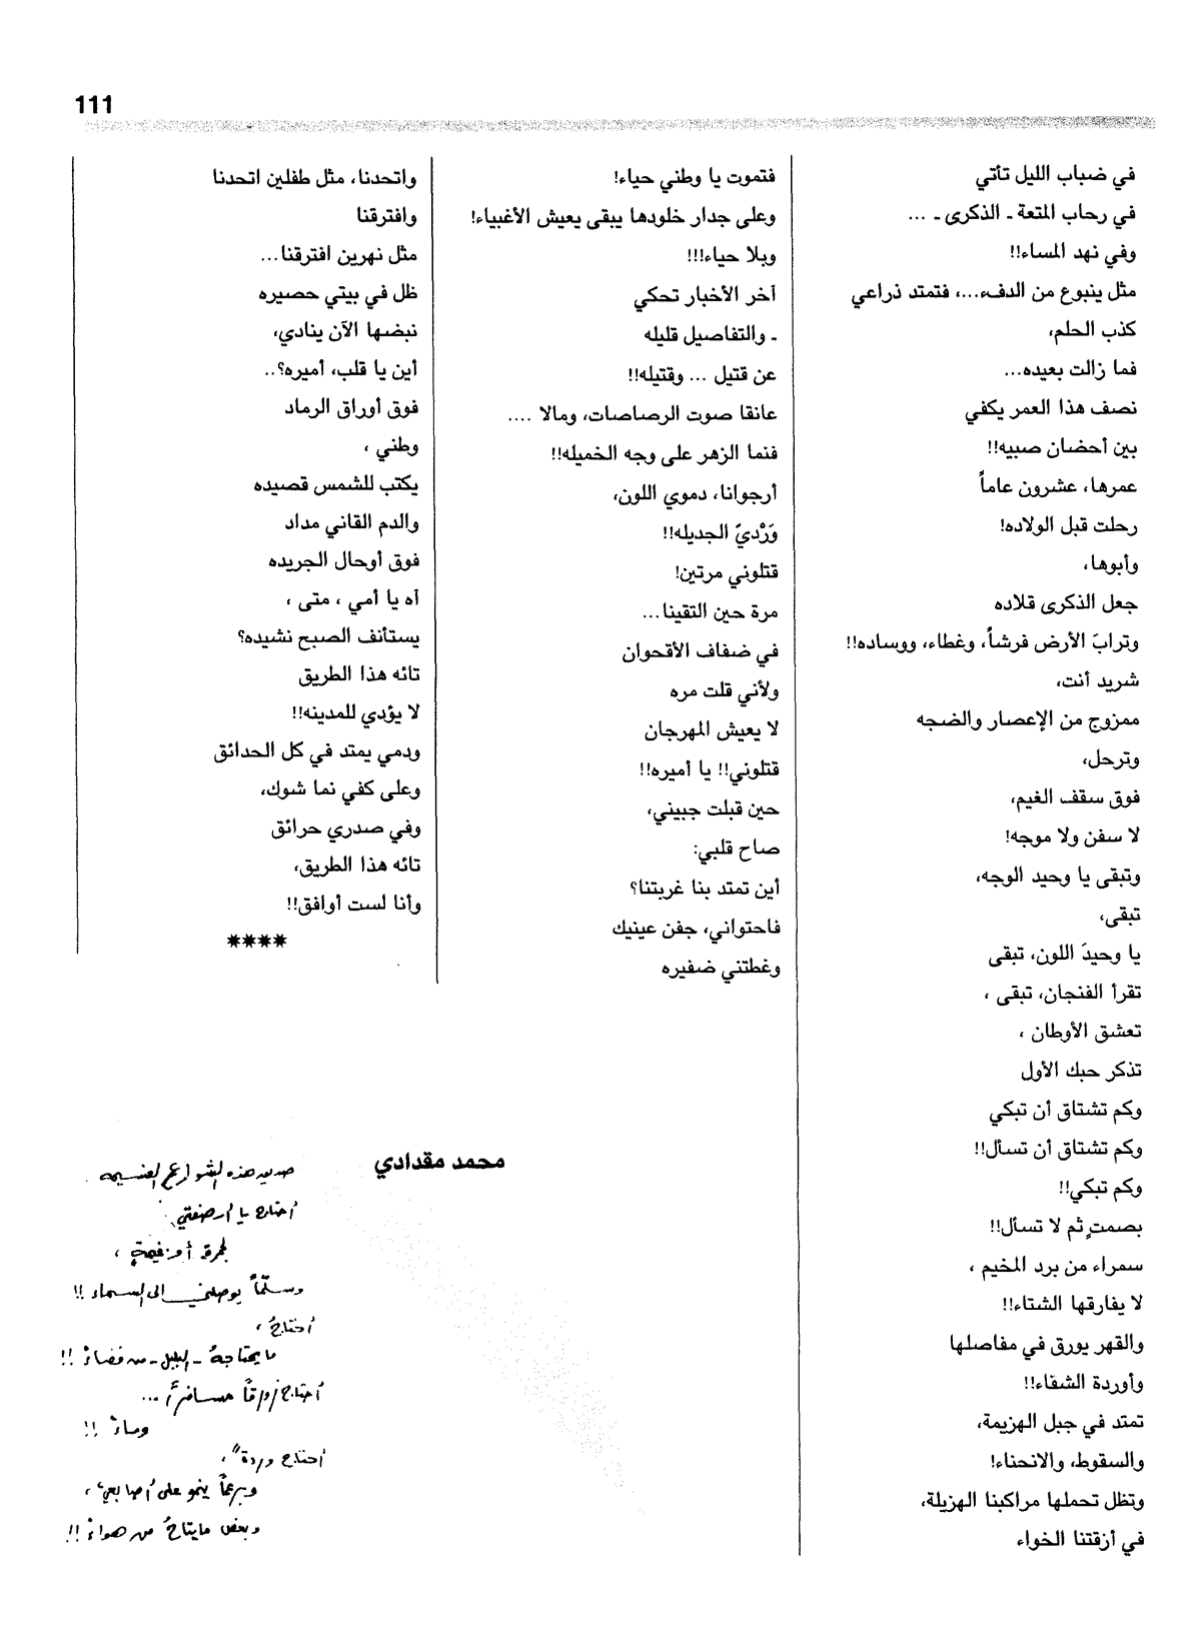 111
في ضباب الليل تأتي
في رحاب المتعة ـ الذكرى ـ ...
وفي نهد المساء!!
مثل ينبوع من الدفء...، فتمتد ذراعي
كذب الحلم،
فما زالت بعيده...
نصف هذا العمر يكفي
بين أحضان صبيه!!
عمرها، عشرون عاماً
رحلت قبل الولاده!
وأبوها،
جعل الذكرى قلاده
وترابَ الأرض فرشاً، وغطاء، ووساده!!
شريد أنت،
ممزوج من الإعصار والضجه
وترحل،
فوق سقف الغيم،
لا سفن ولا موجه!
وتبقى يا وحيد الوجه،
تبقى،
يا وحيدَ اللون، تبقى
تقرأ الفنجان، تبقى ،
تعشق الأوطان ،
تذكر حبك الأول
وكم تشتاق أن تبكي
وكم تشتاق أن تسأل!!
وكم تبكي!!
بصمتٍ ثم لا تسأل!!
سمراء من برد المخيم ،
لا يفارقها الشتاء!!
والقهر يورق في مفاصلها
وأوردة الشفاء!!
تمتد في جبل الهزيمة،
والسقوط، والانحناء!
وتظل تحملها مراكبنا الهزيلة،
في أزقتنا الخواء
فتموت يا وطني حياء!
وعلى جدار خلودها يبقى يعيش الأغبياء!
وبلا حياء!!!
آخر الأخبار تحكي
ـ والتفاصيل قليله
عن قتيل ... وقتيله!!
عانقا صوت الرصاصات، ومالا ....
فنما الزهر على وجه الخميله!!
أرجوانا، دموي اللون،
وَرْديّ الجديله!!
قتلوني مرتين!
مرة حين التقينا...
في ضفاف الأقحوان
ولأني قلت مره
لا يعيش المهرجان
قتلوني!! يا أميره!!
حين قبلت جبيني،
صاح قلبي:
أين تمتد بنا غربتنا؟
فاحتواني، جفن عينيك
وغطتني ضفيره
واتحدنا، مثل طفلين اتحدنا
وافترقنا
مثل نهرين افترقنا...
ظل في بيتي حصيره
نبضها الآن ينادي،
أين يا قلب، أميره؟..
فوق أوراق الرماد
وطني ،
يكتب للشمس قصيده
والدم القاني مداد
فوق أوحال الجريده
آه يا أمي ، متى ،
يستأنف الصبح نشيده؟
تائه هذا الطريق
لا يؤدي للمدينه!!
ودمي يمتد في كل الحدائق
وعلى كفي نما شوك،
وفي صدري حرائق
تائه هذا الطريق،
وأنا لست أوافق!!
****
محمد مقدادي
هذه الشوارع القديمه
أحتاج يا أرصفتي
أو نغيمةٍ ،
وسلّماً يوصلني إلى السماء !!
أحتاج ،
ما يحتاجه ـ الليل ـ من فضاء !!
أحتاج زورقاً مسافراً ...
وماء !!
أحتاج وردة ،
وبرعماً ينمو على أصابعي ،
وبعض ما يتاح من هواء !!